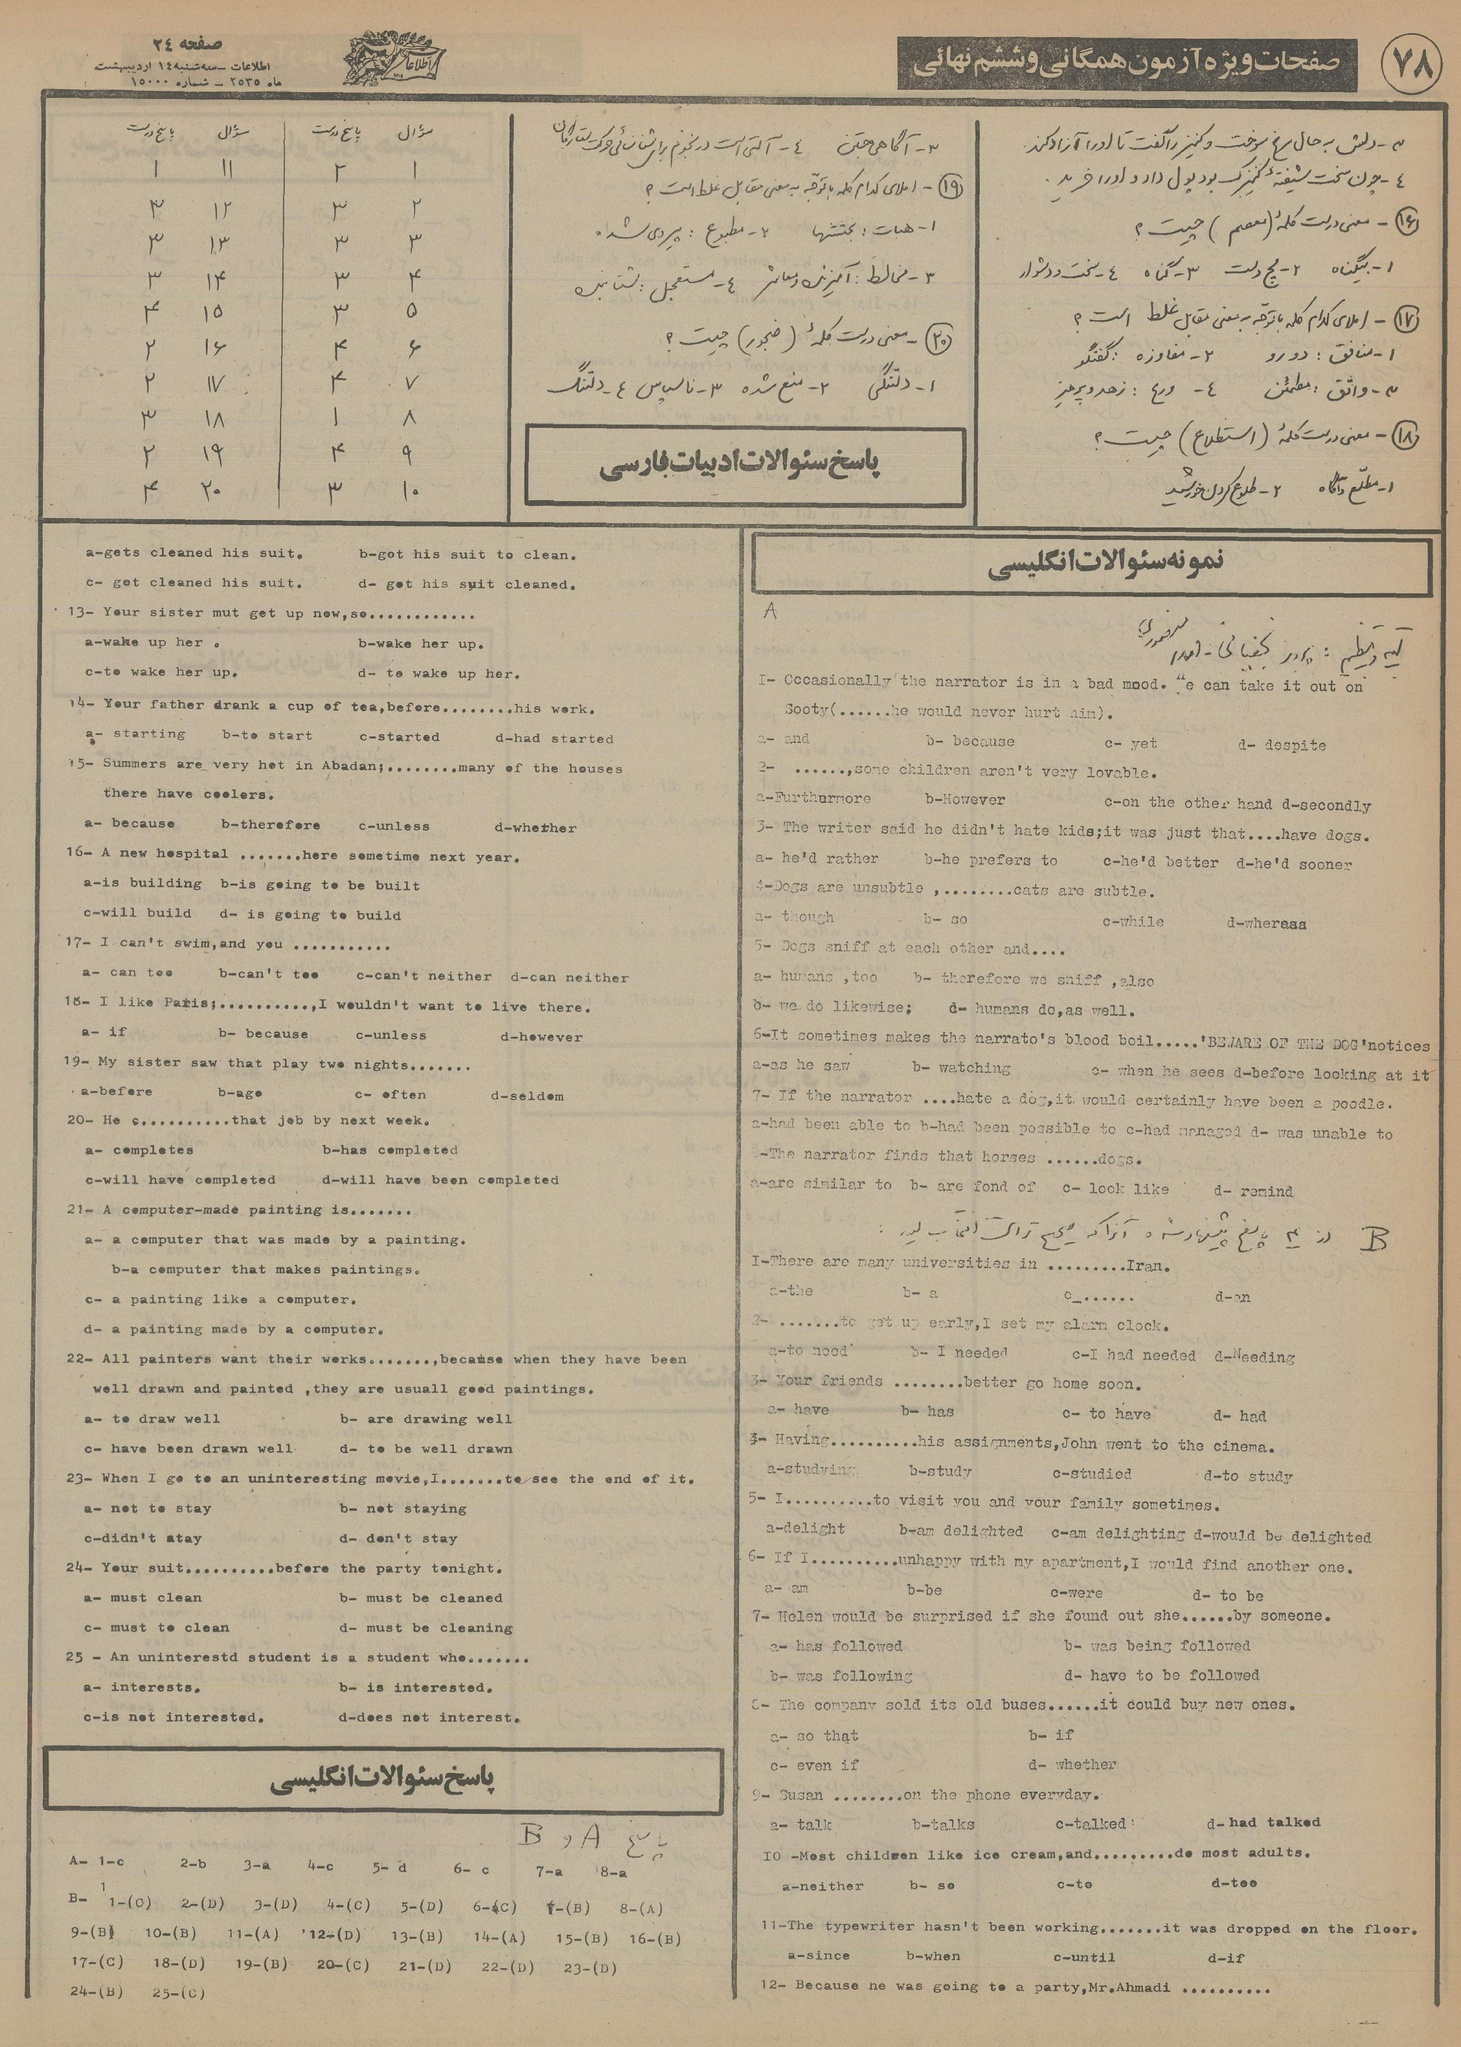 ۷۸
صفحات ویژه آزمون همگانی و ششم نهائی
صفحه ۲۴
اطلاعات
اطلاعات – سه شنبه ۱۴ اردیبهشت
ماه ۲۵۳۵ – شماره ۱۵۰۰۰
۳- دلش به حال مرغ سوخت و کنیز را گفت تا او را آزاد کند
۴- چون سخت شیفتهٔ کنیزک بود پول داد و او را خرید.
۱۶ - معنی درست کلمهٔ (معصم) چیست؟
۱- بیگناه ۲- مچ دست ۳- گناه ۴- سخت و دشوار
۱۷ - املای کدام کلمه با توجّه به معنی مقابل غلط است؟
۱- منافق : دورو ۲- مفاوزه : گفتگو
۳- واثق : مطمئن ۴- ورع : زهد و پرهیز
۱۸ - معنی درست کلمهٔ (استطلاع) چیست؟
۱- مطّلع و آگاه ۲- طلوع کردن خورشید
۳- آگاهی جستن ۴- آلتی است در نجوم برای شناسائی حرکت ستارگان
۱۹ - املای کدام کلمه با توجّه به معنی مقابل غلط است؟
۱- هبات : بخششها ۲- مطبوع : پیروی شده
۳- مخالط : آمیزنده و معاشر ۴- مستعجل : شتابنده
۲۰ - معنی درست کلمهٔ (ضجور) چیست؟
۱- دلتنگی ۲- منع شده ۳- ناسپاس ۴- دلتنگ
پاسخ سئوالات ادبیات فارسی
سؤال پاسخ درست سؤال پاسخ درست
۱ ۲ ۱۱ ۱
۲ ۳ ۱۲ ۳
۳ ۳ ۱۳ ۳
۴ ۳ ۱۴ ۳
۵ ۳ ۱۵ ۴
۶ ۴ ۱۶ ۲
۷ ۴ ۱۷ ۲
۸ ۱ ۱۸ ۳
۹ ۴ ۱۹ ۲
۱۰ ۳ ۲۰ ۴
نمونه سئوالات انگلیسی
A
تهیه و تنظیم : پرویز
1- Occasionally the narrator is in a bad mood. He can take it out on
Sooty(......he would never hurt him).
a- and b- because c- yet d- despite
2- ......,some children aren't very lovable.
a-Furthurmore b-However c-on the other hand d-secondly
3- The writer said he didn't hate kids;it was just that....have dogs.
a- he'd rather b-he prefers to c-he'd better d-he'd sooner
4-Dogs are unsubtle ,........cats are subtle.
a- though b- so c-while d-whereas
5- Dogs sniff at each other and....
a- humans ,too b- therefore we sniff ,also
b- we do likewise; d- humans do,as well.
6-It sometimes makes the narrato's blood boil.....'BEWARE OF THE DOG'notices
a-as he saw b- watching c- when he sees d-before looking at it
7- If the narrator ....hate a dog,it would certainly have been a poodle.
a-had been able to b-had been possible to c-had managed d- was unable to
-The narrator finds that horses ......dogs.
a-are similar to b- are fond of c- look like d- remind
B از ۴ پاسخ پیشنهاد شده آنرا که صحیح تر است انتخاب کنید :
I-There are many universities in .........Iran.
a-the b- a c-...... d-an
2- .......to get up early,I set my alarm clock.
a-to need b- I needed c-I had needed d-Needing
3- Your friends ........better go home soon.
a- have b- has c- to have d- had
4- Having..........his assignments,John went to the cinema.
a-studying b-study c-studied d-to study
5- I..........to visit you and your family sometimes.
a-delight b-am delighted c-am delighting d-would be delighted
6- If I..........unhappy with my apartment,I would find another one.
a- am b-be c-were d- to be
7- Helen would be surprised if she found out she......by someone.
a- has followed b- was being followed
b- was following d- have to be followed
8- The company sold its old buses......it could buy new ones.
a- so that b- if
c- even if d- whether
9- Susan ........on the phone everyday.
a- talk b-talks c-talked d- had talked
10 -Most children like ice cream,and.........do most adults.
a-neither b- so c-to d-too
11-The typewriter hasn't been working.......it was dropped on the floor.
a-since b-when c-until d-if
12- Because he was going to a party,Mr.Ahmadi ..........
a-gets cleaned his suit. b-got his suit to clean.
c- got cleaned his suit. d- got his suit cleaned.
13- Your sister mut get up now,so............
a-wake up her . b-wake her up.
c-to wake her up. d- to wake up her.
14- Your father drank a cup of tea,before........his work.
a- starting b-to start c-started d-had started
15- Summers are very hot in Abadan;........many of the houses
there have coolers.
a- because b-therefore c-unless d-whether
16- A new hospital .......here sometime next year.
a-is building b-is going to be built
c-will build d- is going to build
17- I can't swim,and you ...........
a- can too b-can't too c-can't neither d-can neither
18- I like Paris;..........,I wouldn't want to live there.
a- if b- because c-unless d-however
19- My sister saw that play two nights.......
a-before b-ago c- often d-seldom
20- He ...........that job by next week.
a- completes b-has completed
c-will have completed d-will have been completed
21- A computer-made painting is.......
a- a computer that was made by a painting.
b-a computer that makes paintings.
c- a painting like a computer.
d- a painting made by a computer.
22- All painters want their works.......,because when they have been
well drawn and painted ,they are usuall good paintings.
a- to draw well b- are drawing well
c- have been drawn well d- to be well drawn
23- When I go to an uninteresting movie,I.......to see the end of it.
a- not to stay b- not staying
c-didn't atay d- don't stay
24- Your suit..........before the party tonight.
a- must clean b- must be cleaned
c- must to clean d- must be cleaning
25 - An uninterestd student is a student who.......
a- interests. b- is interested.
c-is not interested. d-does not interest.
پاسخ سئوالات انگلیسی
پاسخ A و B
A- 1-c 2-b 3-a 4-c 5- d 6- c 7-a 8-a
B- 1-(C) 2-(D) 3-(D) 4-(C) 5-(D) 6-(C) 7-(B) 8-(A)
9-(B) 10-(B) 11-(A) 12-(D) 13-(B) 14-(A) 15-(B) 16-(B)
17-(C) 18-(D) 19-(B) 20-(C) 21-(D) 22-(D) 23-(D)
24-(B) 25-(C)